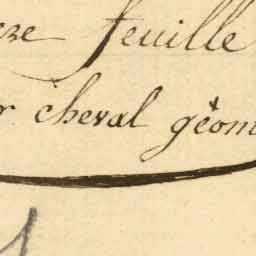 feuille
cheval géom